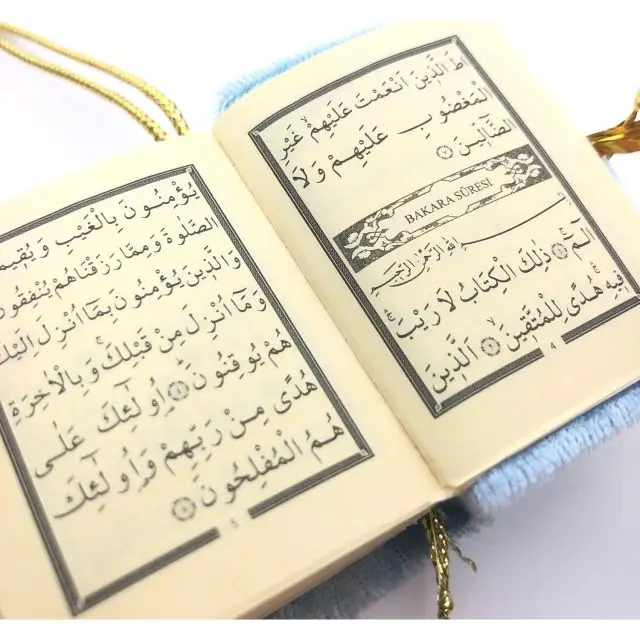 طَ الَّذِينَ اَنْعَمْتَ عَلَيْهِمْ غَيْرِ
الْمَغْضُوبِ عَلَيْهِمْ وَلَا
الضَّٓالِّينَ ۝٧
BAKARA SÛRESİ
بِسْمِ اللّٰهِ الرَّحْمٰنِ الرَّحِيمِ
الٓمٓ ۝١ ذٰلِكَ الْكِتَابُ لَا رَيْبَۚ
فِيهِۚ هُدًى لِلْمُتَّقِينَ ۝٢ اَلَّذِينَ
4
يُؤْمِنُونَ بِالْغَيْبِ وَيُقِيمُ
الصَّلٰوةَ وَمِمَّا رَزَقْنَاهُمْ يُنْفِقُونَ
وَالَّذِينَ يُؤْمِنُونَ بِمَٓا اُنْزِلَ اِلَيْكَ
وَمَٓا اُنْزِلَ مِنْ قَبْلِكَۚ وَبِالْاٰخِرَةِ
هُمْ يُوقِنُونَ ۝٤ اُو۬لٰٓئِكَ عَلٰى
هُدًى مِنْ رَبِّهِمْ وَاُو۬لٰٓئِكَ
هُمُ الْمُفْلِحُونَ ۝٥
5